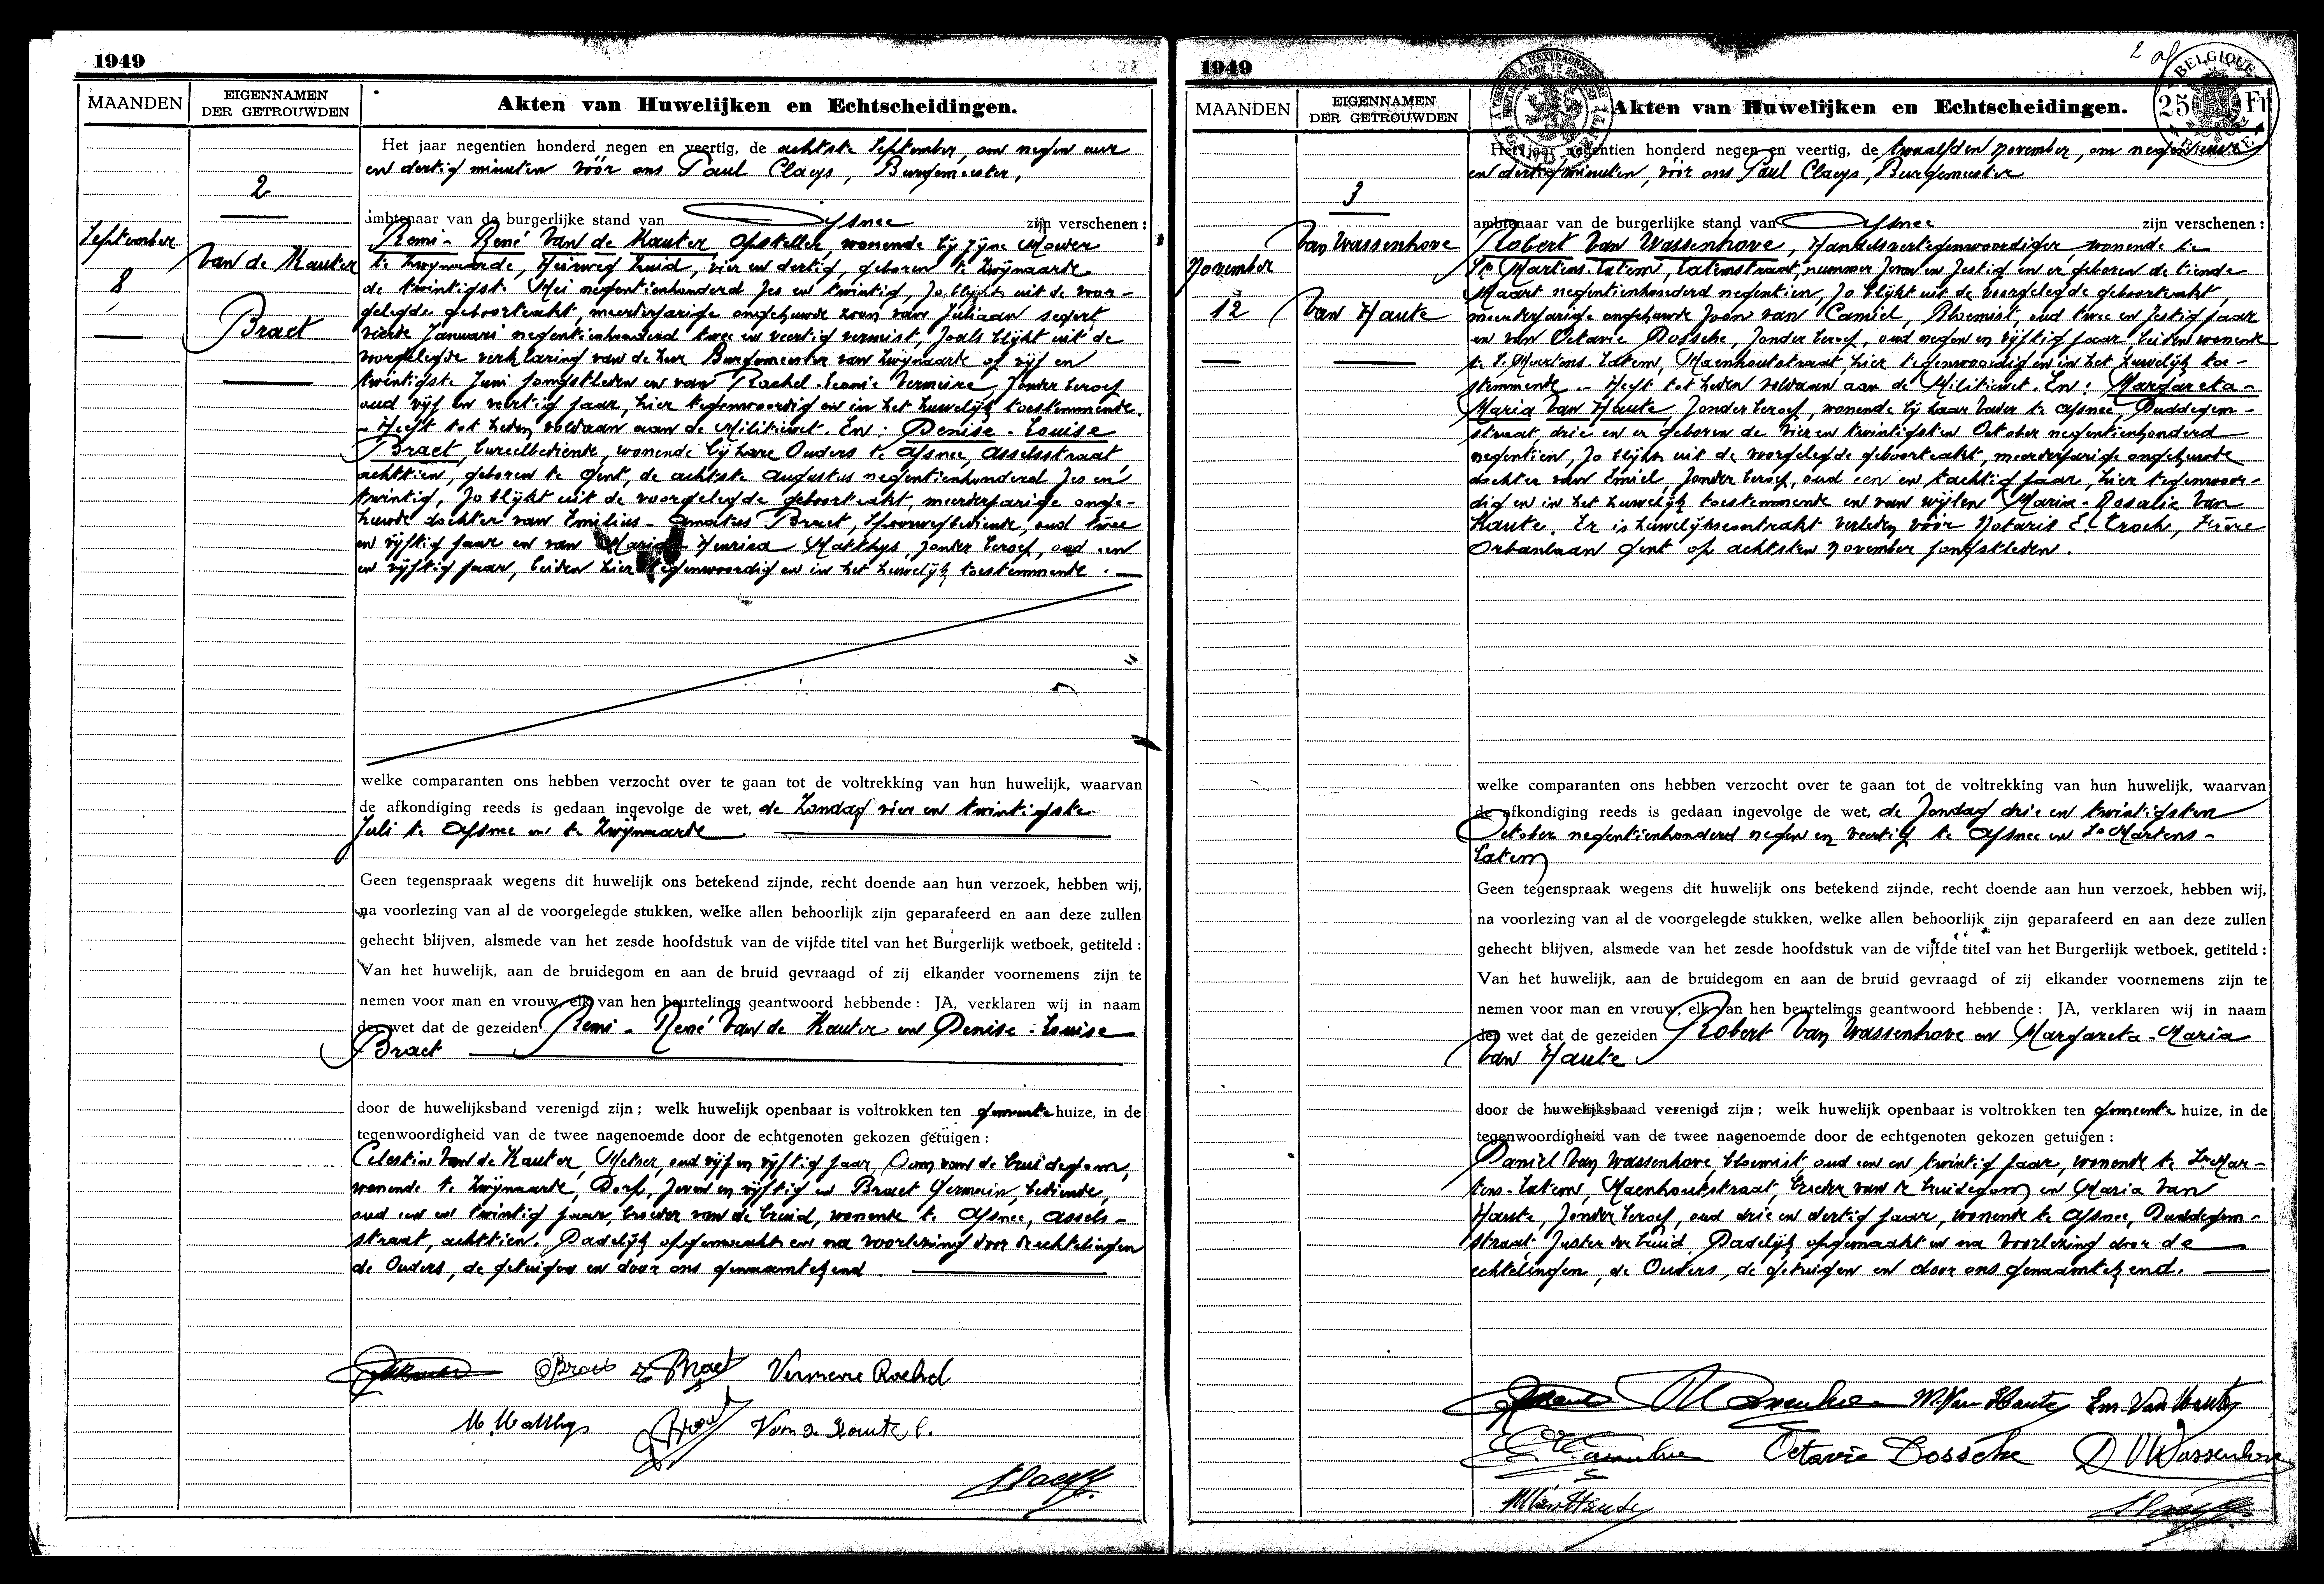 1949
MAANDEN
EIGENNAMEN
DER GETROUWDEN
Akten van Huwelijken en Echtscheidingen.
2
September
8
Van de Kauter
Braet
Het jaar negentien honderd negen en veertig, de achtste September, om negen uur
en dertig minuten vóór ons Paul Claeys, Burgemeester,
ambtenaar van de burgerlijke stand van Afsnee zijn verschenen :
Remi - René Van de Kauter opsteller, wonende bij zijne Moeder
te Zwijnaarde, Heirweg Zuid, vier en dertig, geboren te Zwijnaarde
de twintigste Mei negentienhonderd zes en twintig, zo blijkt uit de voor-
gelegde geboorteakt, meerderjarige ongehuwde zoon van Juliaan sedert
vierde Januari negentienhonderd twee en veertig vermist, zoals blijkt uit de
voorgelegde verklaring van de heer Burgemeester van Zwijnaarde of vijf en
twintigste Juni jongstleden en van Rachel-Leonie Vermeire, zonder beroep
oud vijf en veertig jaar, hier tegenwoordig en in het huwelijk toestemmende.
- Heeft tot heden voldaan aan de Militiewet. En : Denise - Louise
Braet, bureelbediende, wonende bij hare Ouders te Afsnee, Asselsstraat,
achttien, geboren te Gent, de achtste Augustus negentienhonderd zes en
twintig, zo blijkt uit de voorgelegde geboorteakt, meerderjarige onge-
huwde dochter van Emilius - Amatus Braet, Spoorwegbediende, oud twee
en vijftig jaar en van Maria Henrica Matthys, zonder beroep, oud een
en vijftig jaar, beiden hier tegenwoordig en in het huwelijk toestemmende.
welke comparanten ons hebben verzocht over te gaan tot de voltrekking van hun huwelijk, waarvan
de afkondiging reeds is gedaan ingevolge de wet, de Zondag vier en twintigste
Juli te Afsnee en te Zwijnaarde
Geen tegenspraak wegens dit huwelijk ons betekend zijnde, recht doende aan hun verzoek, hebben wij,
na voorlezing van al de voorgelegde stukken, welke allen behoorlijk zijn geparafeerd en aan deze zullen
gehecht blijven, alsmede van het zesde hoofdstuk van de vijfde titel van het Burgerlijk wetboek, getiteld :
Van het huwelijk, aan de bruidegom en aan de bruid gevraagd of zij elkander voornemens zijn te
nemen voor man en vrouw, elk van hen beurtelings geantwoord hebbende : JA, verklaren wij in naam
der wet dat de gezeiden Remi - René Van de Kauter en Denise - Louise
Braet
door de huwelijksband verenigd zijn ; welk huwelijk openbaar is voltrokken ten gemeente huize, in de
tegenwoordigheid van de twee nagenoemde door de echtgenoten gekozen getuigen :
Celestin Van de Kauter, Metser, oud vijf en vijftig jaar, Oom van de bruidegom,
wonende te Zwijnaarde, Dorp, zeven en vijftig en Braet Germain, bediende,
oud een en twintig jaar, broeder van de bruid, wonende te Afsnee, Assels-
straat, achttien. Dadelijk opgemaakt en na voorlezing door de echtelingen
de Ouders, de getuigen en door ons genaamtekend.
DBraet E Braet Vermeire Rachel
M. Matthys G Braet Van de Kauter C.
Claeys
1949
2
BELGIQUE
25 Fr
MAANDEN
EIGENNAMEN
DER GETROUWDEN
Akten van Huwelijken en Echtscheidingen.
3
November
12
Van Wassenhove
Van Haute
Het jaar negentien honderd negen en veertig, de twaalfden november, om negen uur
en dertig minuten, vóór ons Paul Claeys, Burgemeester
ambtenaar van de burgerlijke stand van Afsnee zijn verschenen :
Robert Van Wassenhove, Handelsvertegenwoordiger, wonende te
St Martens-Latem, Latemstraat, nummer zeven en zestig en er geboren de tiende
Maart negentienhonderd negentien, zo blijkt uit de voorgelegde geboorteakt,
meerderjarige ongehuwde zoon van Camiel, Bloemist, oud twee en zestig jaar
en van Octavie Dossche, zonder beroep, oud negen en vijftig jaar beiden wonende
te S. Martens-Latem, Maenhoutstraat, hier tegenwoordig en in het huwelijk toe-
stemmende. - Heeft tot heden voldaan aan de Militiewet. En : Margareta-
Maria Van Haute zonder beroep, wonende bij haar Vader te Afsnee, Duddegem-
straat, drie en er geboren de vier en twintigsten October negentienhonderd
negentien, zo blijkt uit de voorgelegde geboorteakt, meerderjarige ongehuwde
dochter van Emiel, zonder beroep, oud een en tachtig jaar, hier tegenwoor-
dig en in het huwelijk toestemmende en van wijlen Maria-Rosalie Van
Haute. Er is huwelijkscontrakt verleden vóór Notaris E. Troch, Frère
Orbanlaan Gent op achtsten November jongstleden.
welke comparanten ons hebben verzocht over te gaan tot de voltrekking van hun huwelijk, waarvan
de afkondiging reeds is gedaan ingevolge de wet, de Zondag drie en twintigsten
October negentienhonderd negen en veertig te Afsnee en St Martens-
Latem
Geen tegenspraak wegens dit huwelijk ons betekend zijnde, recht doende aan hun verzoek, hebben wij,
na voorlezing van al de voorgelegde stukken, welke allen behoorlijk zijn geparafeerd en aan deze zullen
gehecht blijven, alsmede van het zesde hoofdstuk van de vijfde titel van het Burgerlijk wetboek, getiteld :
Van het huwelijk, aan de bruidegom en aan de bruid gevraagd of zij elkander voornemens zijn te
nemen voor man en vrouw, elk van hen beurtelings geantwoord hebbende : JA, verklaren wij in naam
der wet dat de gezeiden Robert Van Wassenhove en Margareta-Maria
Van Haute
door de huwelijksband verenigd zijn ; welk huwelijk openbaar is voltrokken ten gemeente huize, in de
tegenwoordigheid van de twee nagenoemde door de echtgenoten gekozen getuigen :
Daniël Van Wassenhove, bloemist oud een en twintig jaar, wonende te St Mar-
tens-Latem, Maenhoutstraat, broeder van de bruidegom en Maria Van
Haute, zonder beroep, oud drie en dertig jaar, wonende te Afsnee, Duddegem-
straat, zuster der bruid. Dadelijk opgemaakt en na voorlezing door de
echtelingen, de Ouders, de getuigen en door ons genaamtekend.
M. Van Haute Em. Van Haute
Octavie Dossche D VWassenhove
M Van Haute Claeys